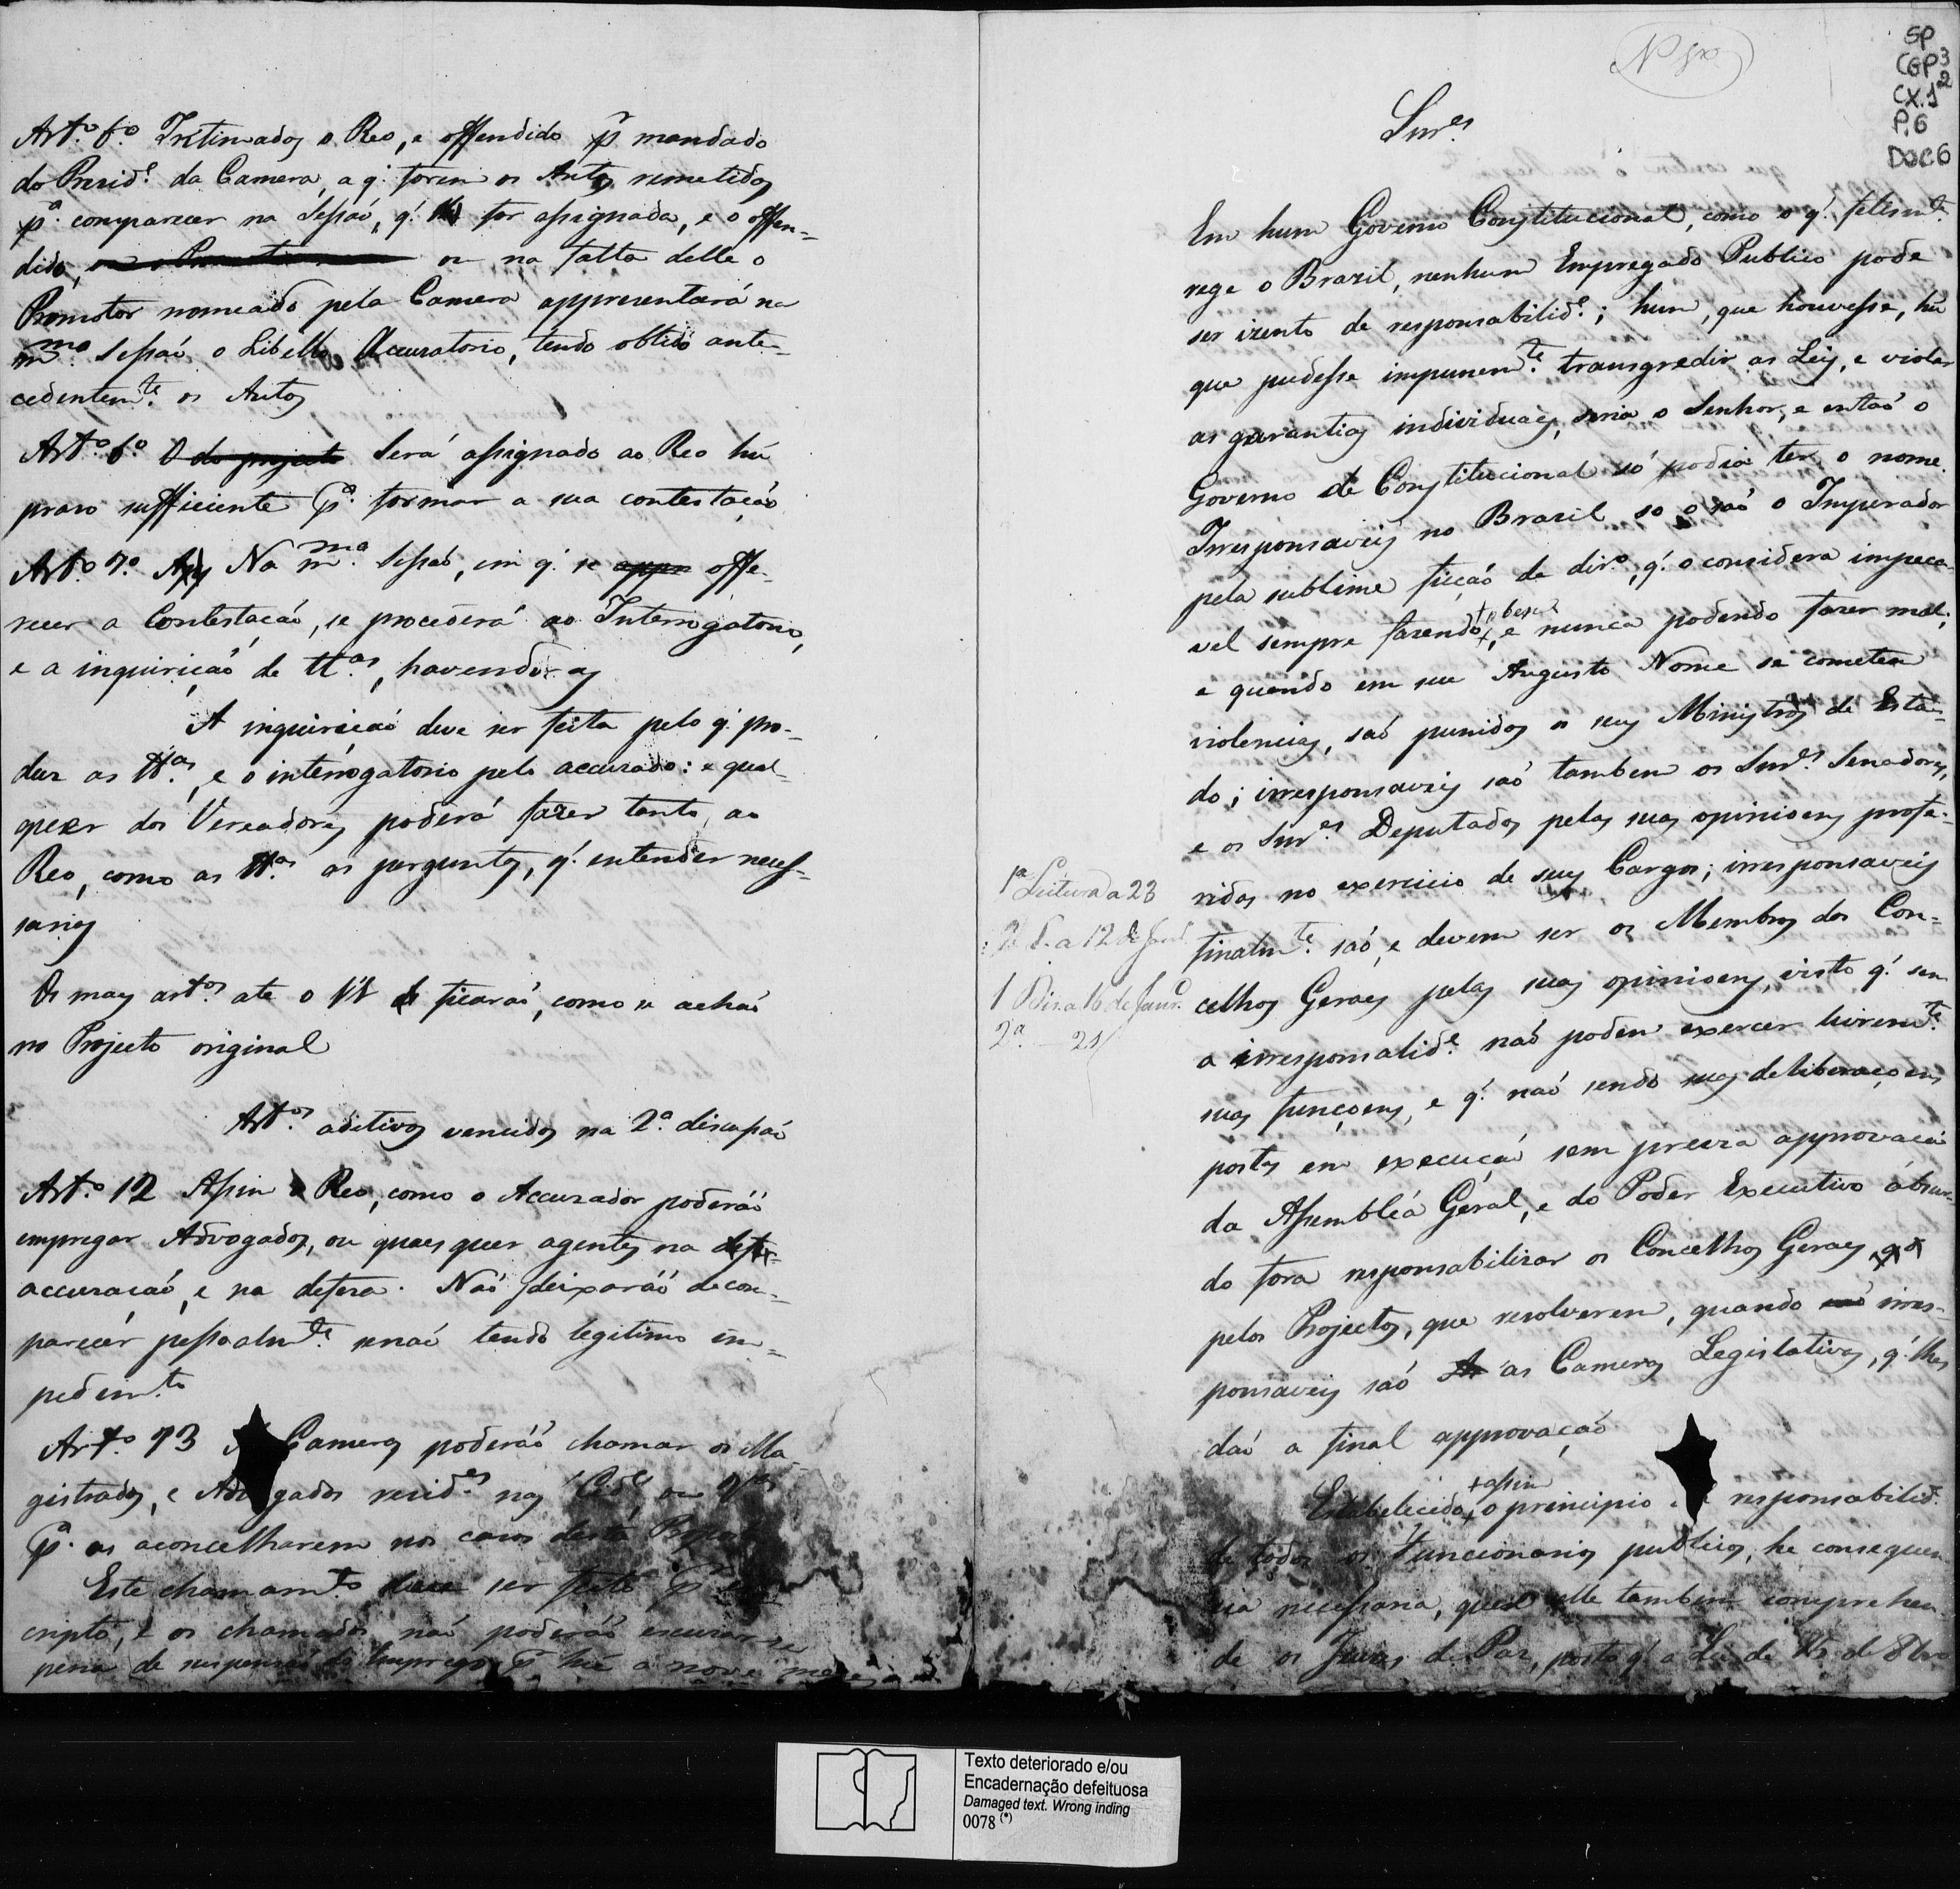 Art.º 6.º Intimados o Reo, e offendido p mandado
do Presid.e da Camera, a q.' forem os Autos remetidos
p.ª comparecer na Sessaõ, q.' for assignada, e o offen-
dido, ou na falta delle o
Promotor nomeado pela Camera appresentará na
m.ma Sessaõ o Libello Accusatorio, tendo obtido ante-
cedentem.te os Autos
Art.º 6.º O do projecto Será assignado ao Reo hũ
praso sufficiente p.ª formar a sua contestaçaõ
Art.º 7.º Na m.ma Sessaõ, em q.' se appre offe-
recer a Contestaçaõ, se procederá ao Interrogatorio,
e a inquiriçaõ de tt.as, havendo-as
A inquiriçaõ deve ser feita pelo q.' pro-
duz as tt.as, e o interrogatorio pelo accusado: e qual-
quer dos Vereadores poderá fazer tanto ao
Reo, como as tt.as as perguntas, q.' entender neces-
sarias
Os mais art.os ate o 11 ficaraõ, como se achaõ
no Projecto original
Art.os aditivos vencidos na 2.ª discussaõ
Art.º 12 Assim o Reo, como o Accusador poderáõ
empregar Advogados, ou quaes quer agentes na
accusaçaõ, e na defesa. Naõ deixaráõ de com-
parecer pessoalm.te senaõ tendo legitimo im-
pedim.to
Art.º 13 Cameras poderáõ chamar os Ma-
gistrados, e Advogados resid.es nas C.des, ou V.as
p.ª os aconcelharem nos casos deste
Este chamam.to deve ser feito p.r es-
cripto, e os chamados naõ poderáõ escusar-se
pena de suspensaõ do Emprego p.r hũ a nove mezes
SP
CGP3
CX.1
P.6
DOC6
Snr.es
Em hum Governo Constitucional, como o q.' felism.te
rege o Brazil, nenhum Empregado Publico pode
ser izento de responsabilid.e; hum, que houvesse, hũ
que pudesse impunem.te transgredir as Leis, e violar
as garantias individuaes, seria o Senhor, e entaõ o
Governo de Constitucional só podia ter o nome.
Irresponsaveis no Brazil so o saõ o Imperador
pela sublime ficçaõ de dir.º, q.' o considera impeca-
vel sempre fazendo + o bem, e nunca podendo fazer mal;
e quando em seu Augusto Nome se cometem
violencias, saõ punidos os seus Ministros de Esta-
do; irresponsaveis saõ tambem os Snr.es Senadores,
e os Snr.es Deputados pelas suas opinioens profe-
ridas no exercicio de seus Cargos; irresponsaveis
finalm.te saõ, e devem ser os Membros dos Con-
celhos Geraes pelas suas opinioens, visto q.' sem
a irresponsalid.e naõ podem exercer livrem.te
suas funçoens, e q.' naõ sendo suas deliberaçoens
postas em execuçaõ sem previa approvaçaõ
da Assembléa Geral, e do Poder Executivo absur-
do fora responsabilizar os Concelhos Geraes
pelos Projectos, que resolverem, quando irres-
ponsaveis saõ as Cameras Legislativas, q.' lhes
daõ a final approvaçaõ
Estabelecido + assim o principio responsabilid.e
de todos os Funcionarios publicos, he consequen-
cia necessaria, que elle tambem comprehen-
de os Juizes de Paz, posto q.' a Lei de 15 de 8bro
1.ª Leitura a 23
2.ª L. a 12 de Janr.º
1 Dis. a 16 de Janr.º
2.ª — 21
Texto deteriorado e/ou
Encadernação defeituosa
Damaged text. Wrong inding
0078 (*)